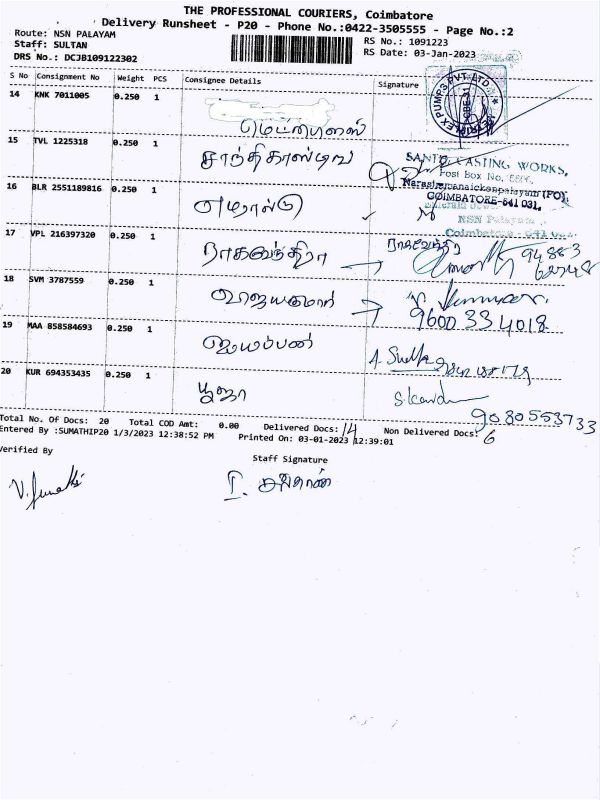 THE PROFESSIONAL COURIERS, Coimbatore
Delivery Runsheet - P20 - Phone No.:0422-3505555 - Page No.:2
Route: NSN PALAYAM
Staff: SULTAN
DRS No.: DCJB109122302
RS No.: 1091223
RS Date: 03-Jan-2023
S No Consignment No Weight PCS Consignee Details Signature
14 KNK 7011005 0.250 1
15 TVL 1225318 0.250 1
SANTHI CASTING WORKS,
Post Box No.
Narasimmanaickenpalayam (PO),
COIMBATORE-641 031.
16 BLR 2551189816 0.250 1
NSN Palayam
Coimbatore
17 VPL 216397320 0.250 1 ராகவேந்திரா ராகவேந்திர
94883
18 SVM 3787559 0.250 1 விஜயகுமார்
9600 334018
19 MAA 858584693 0.250 1 ஐயப்பன்
20 KUR 694353435 0.250 1 பூஜா
9080553733
Total No. Of Docs: 20 Total COD Amt: 0.00 Delivered Docs: 14 Non Delivered Docs: 6
Entered By :SUMATHIP20 1/3/2023 12:38:52 PM Printed On: 03-01-2023 12:39:01
Verified By
Staff Signature